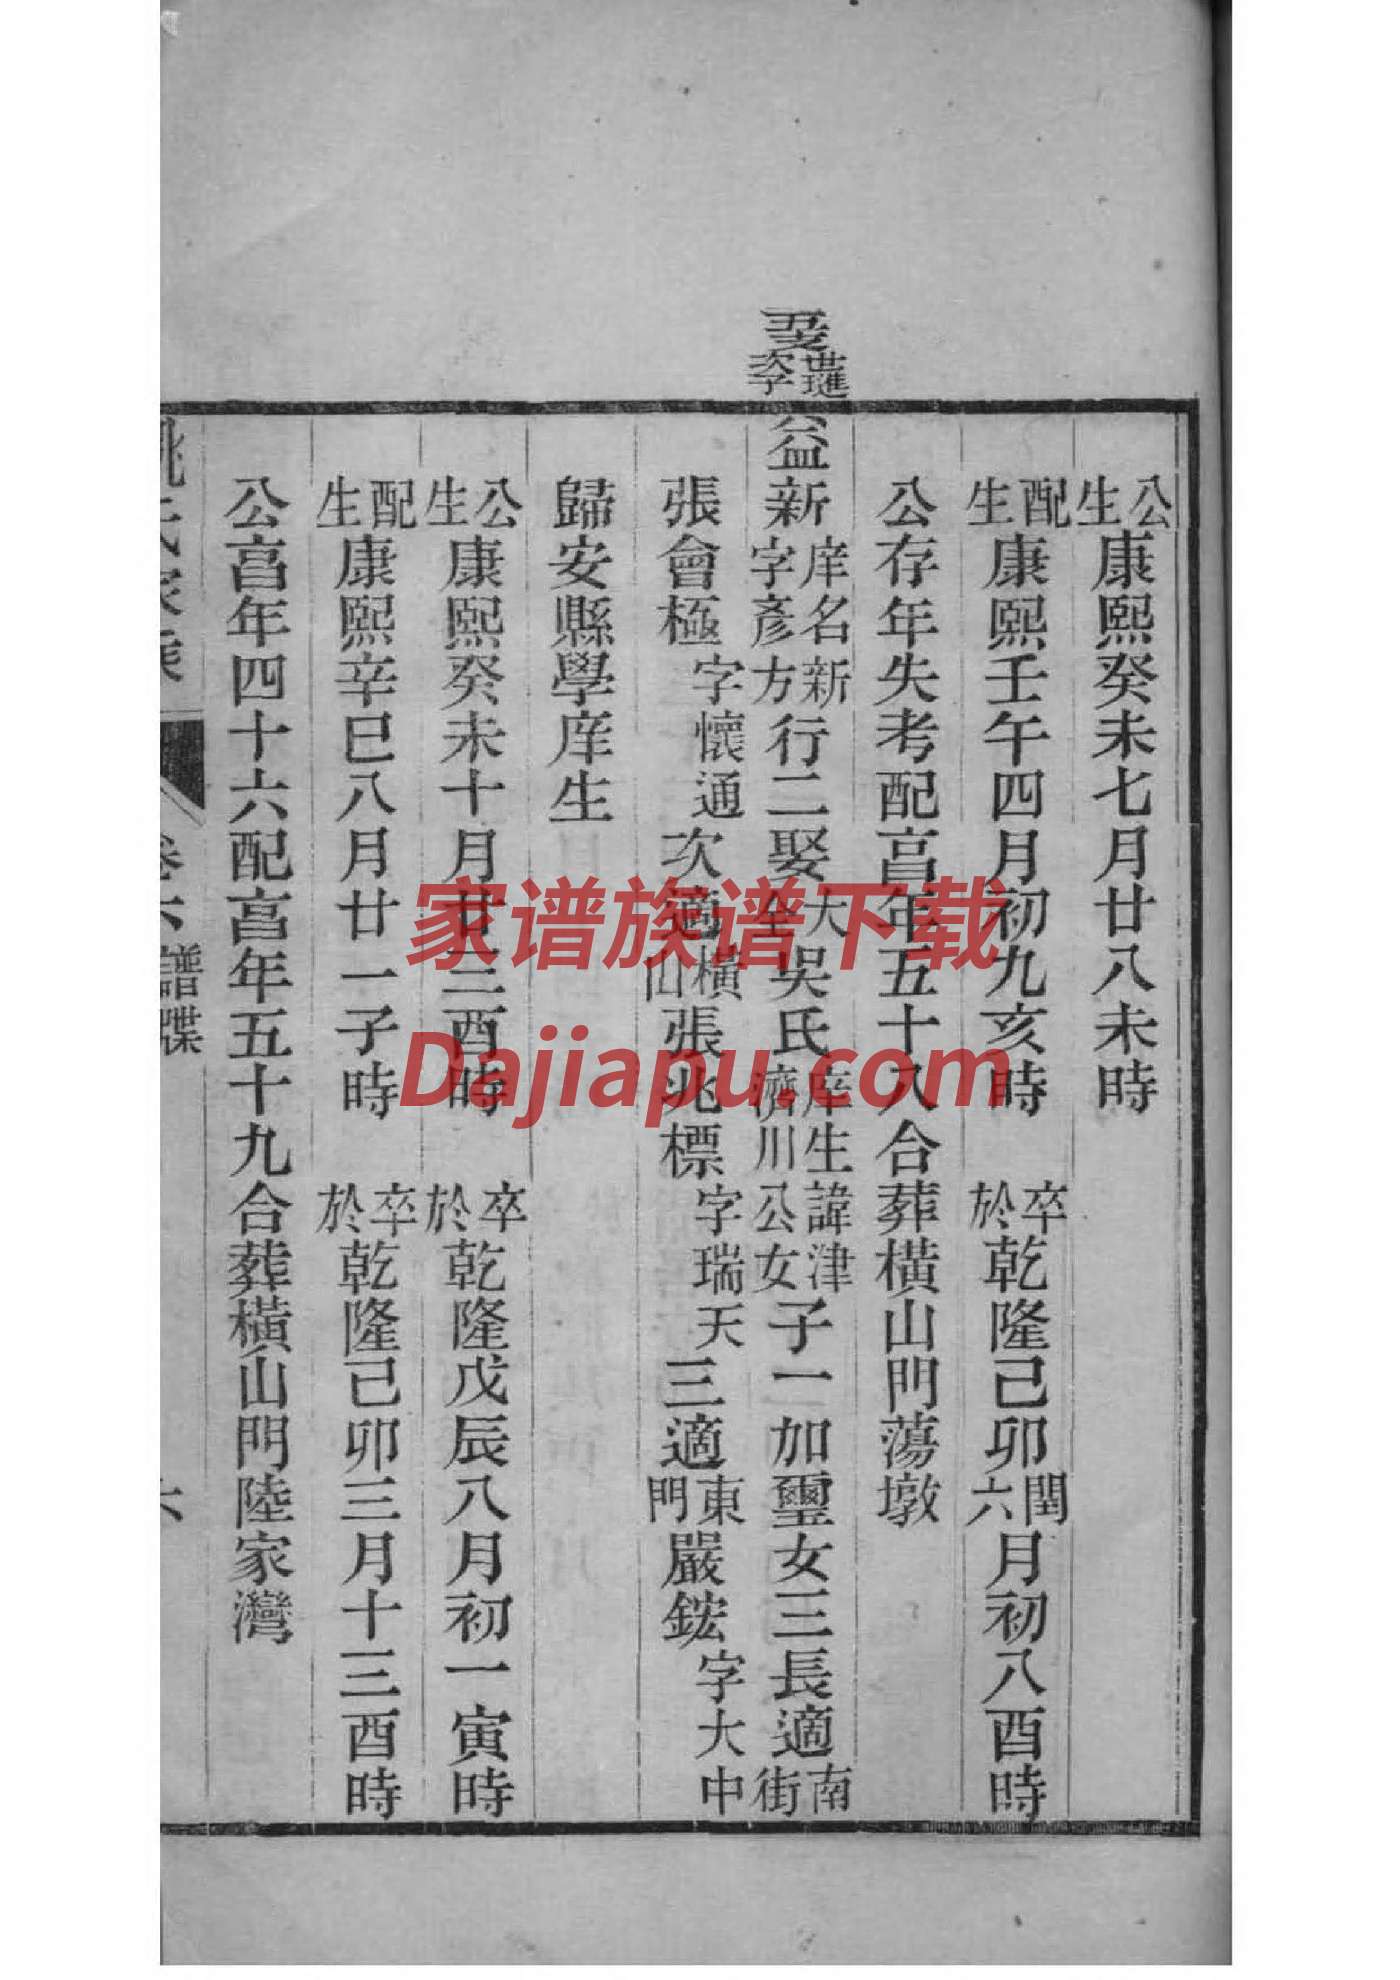 公生康熙癸未七月廿八未時
配生康熙壬午四月初九亥時 卒於乾隆己卯閏六月初八酉時
公存年失考配亯年五十八合葬橫山門蕩墩
世璡次子
益新庠名新字彥方行二娶大全吳氏庠生諱津濟川公女子一加璽女三長適南街
張會極字懷通次適橫山張兆標字瑞天三適東門嚴鋐字大中
歸安縣學庠生
公生康熙癸未十月廿三酉時 卒於乾隆戊辰八月初一寅時
配生康熙辛巳八月廿一子時 卒於乾隆己卯三月十三酉時
公亯年四十六配亯年五十九合葬橫山門陸家灣
姚氏家乘 卷六 譜牒 六
家谱族谱下载
Dajiapu.com